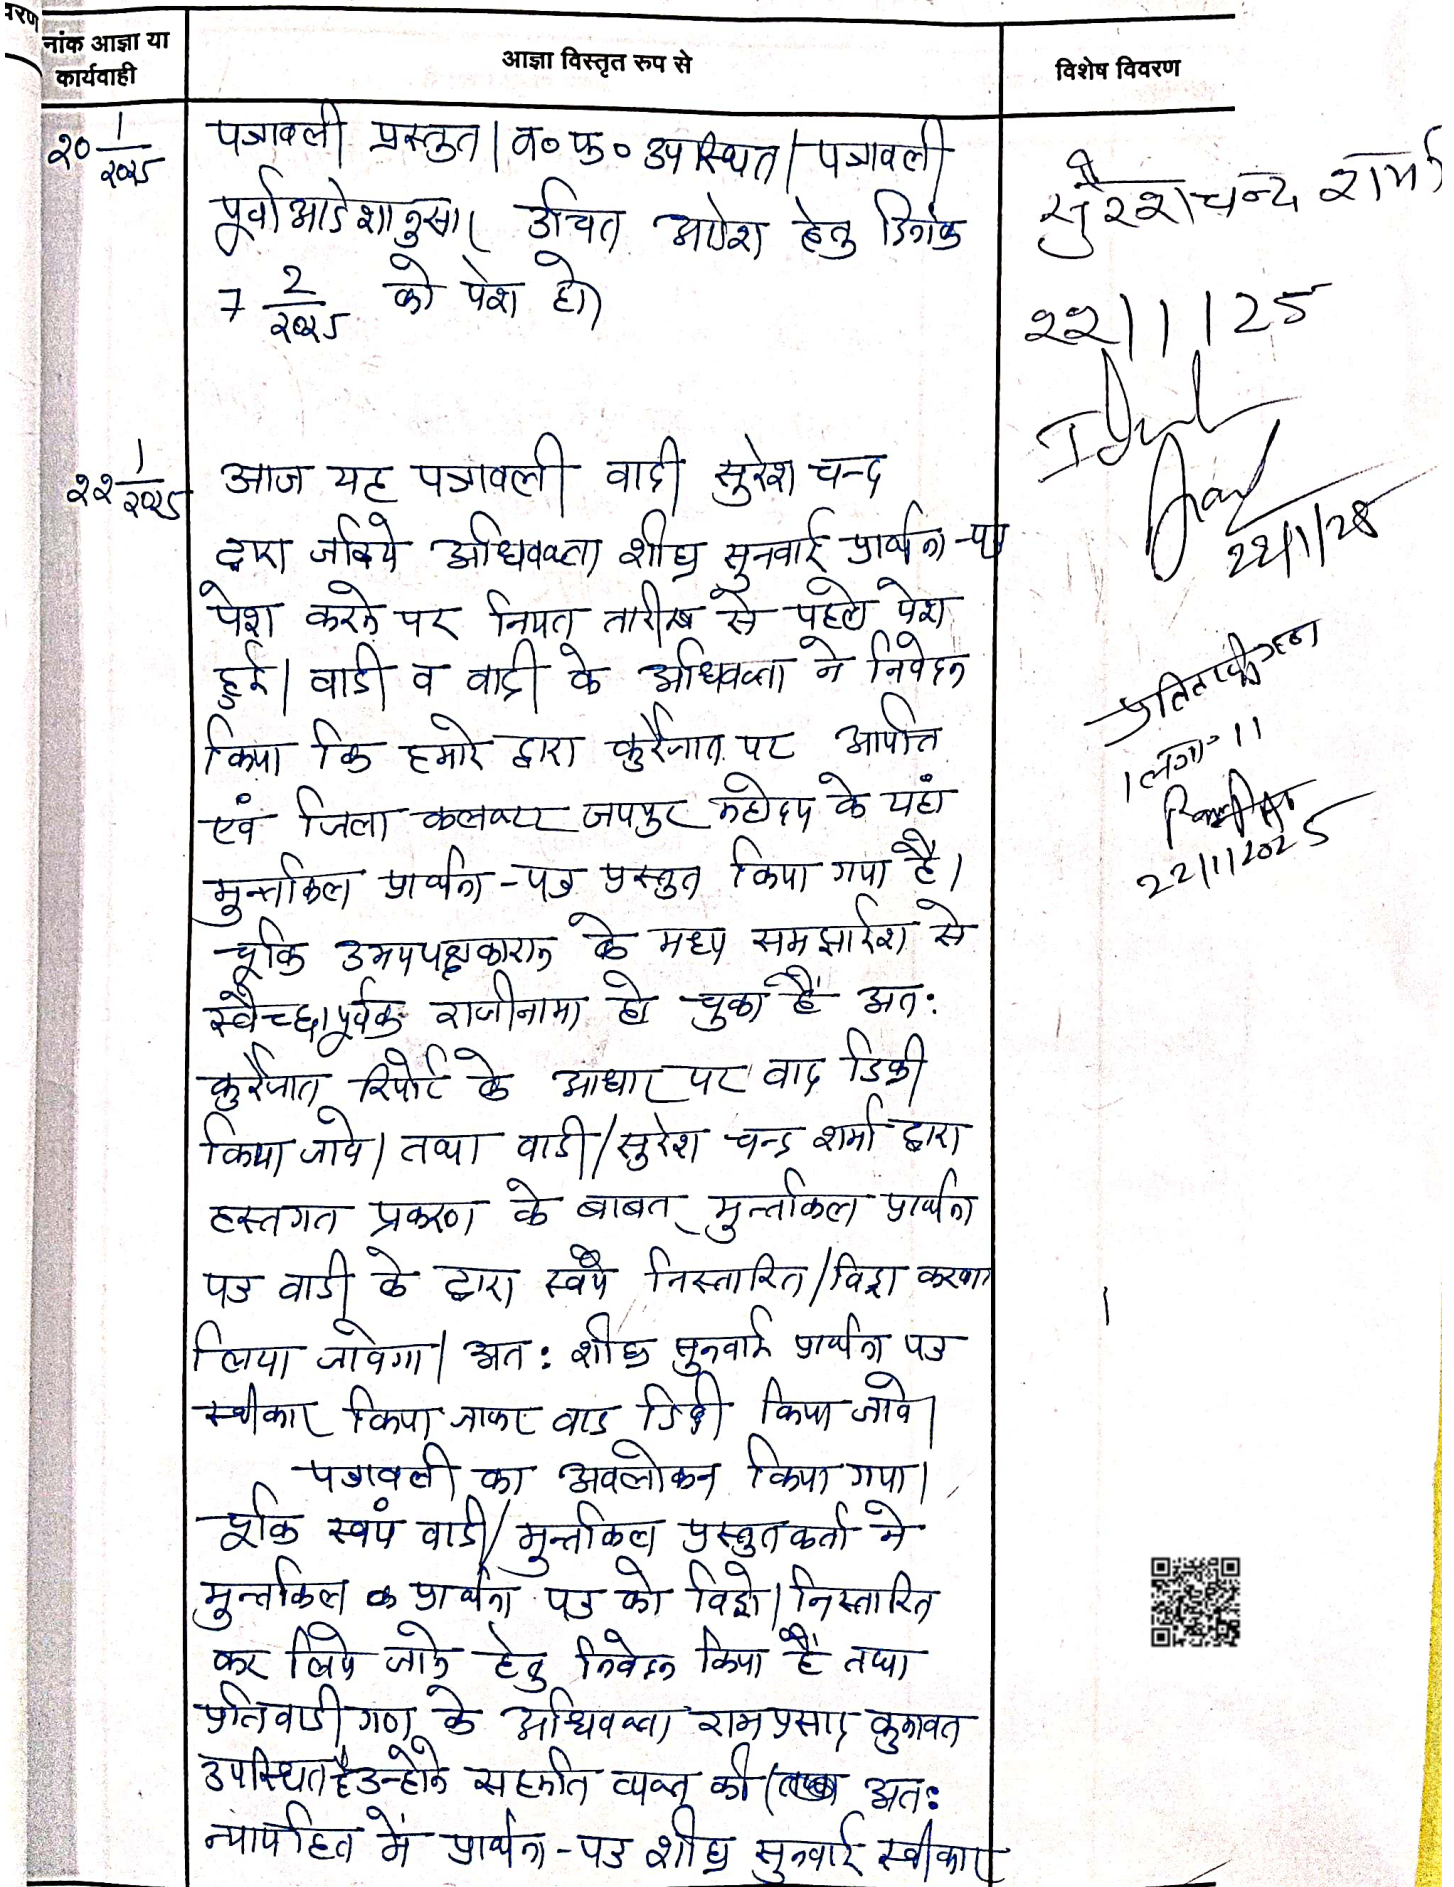 नांक आज्ञा या
कार्यवाही
आज्ञा विस्तृत रुप से
विशेष विवरण
२० 1/२०२५
पत्रावली प्रस्तुत। व० फ० उपस्थित। पत्रावली
पूर्वाआदेशानुसार उचित आदेश हेतु दिनांक
7 2/२०२५ को पेश हो।
सुरेशचन्द शर्मा
२२/1/25
22/1/25
२२ 1/२०२५
आज यह पत्रावली वादी सुरेश चन्द
द्वारा जरिये अधिवक्ता शीघ्र सुनवाई प्रार्थना-पत्र
पेश करने पर नियत तारीख से पहले पेश
हुई। वादी व वादी के अधिवक्ता ने निवेदन
किया कि हमारे द्वारा कुर्रेजात पर आपत्ति
एवं जिला कलक्टर जयपुर महोदय के यहां
मुन्तकिल प्रार्थना-पत्र प्रस्तुत किया गया है।
चूंकि उभयपक्षकारान के मध्य समझाईश से
स्वैच्छापूर्वक राजीनामा हो चुका है अत:
कुर्रेजात रिपोर्ट के आधार पर वाद डिक्री
किया जावे। तथा वादी/सुरेश चन्द्र शर्मा द्वारा
हस्तगत प्रकरण के बाबत मुन्तकिल प्रार्थना
पत्र वादी के द्वारा स्वयं निस्तारित/विड्रा करवा
लिया जावेगा। अत: शीघ्र सुनवाई प्रार्थना पत्र
स्वीकार किया जाकर वाद डिक्री किया जावे।
पत्रावली का अवलोकन किया गया।
चूंकि स्वयं वादी/मुन्तकिल प्रस्तुतकर्ता ने
मुन्तकिल प्रार्थना पत्र को विड्रो/निस्तारित
कर लिये जाने हेतु निवेदन किया है तथा
प्रतिवादीगण के अधिवक्ता रामप्रसाद कुमावत
उपस्थित है उन्होंने सहमति व्यक्त की अत:
न्यायहित में प्रार्थना-पत्र शीघ्र सुनवाई स्वीकार
प्रतिवादीगण
22/1/2025